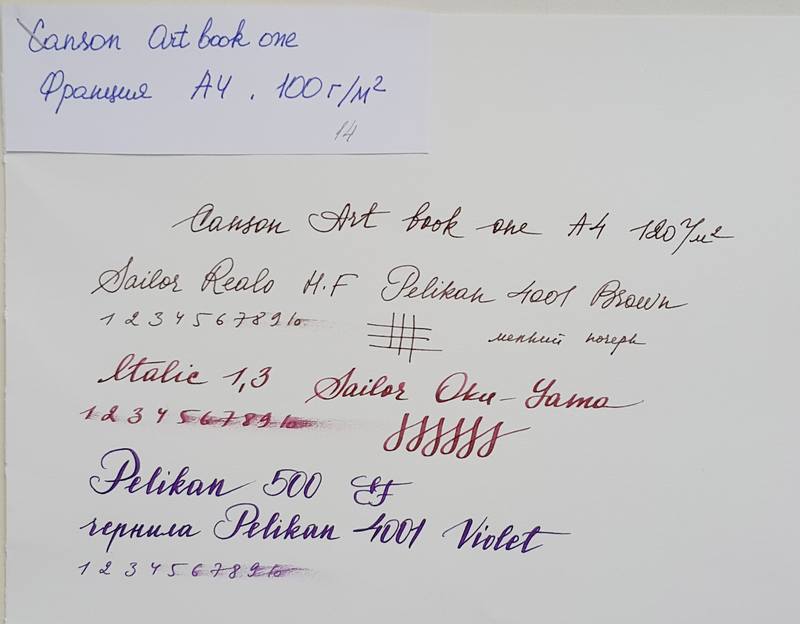 Canson Art book one
Франция А4. 100г/м²
14
Canson Art book one A4 120г/м²
Sailor Realo H.F Pelikan 4001 Brown
1 2 3 4 5 6 7 8 9 10
мелкий почерк
Italic 1,3 Sailor Oku-Yama
1 2 3 4 5 6 7 8 9 10
Pelikan 500 EF
чернила Pelikan 4001 Violet
1 2 3 4 5 6 7 8 9 10